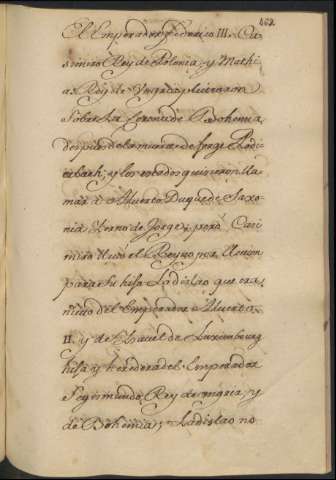 452
El Emperador Federico III. Ca
simiro Rey de Polonia, y Mathi
as Rey de Vngria pleitearon
sobre la Corona de Bohemia,
despues de la muerte de Jorge Podie
bach, y los estados quisieron lla
mar à Alberto Duque de Saxo
nia Yerno de Jorge; pero Casi
miro llevò el Reyno por Union
para su hijo Ladislao que era
nieto del Emperador Alberto
II. y de Isauel de Luxembourg
hija y heredera del Emperador
Segismundo, Rey de vngria, y
de Bohemia; Ladislao no